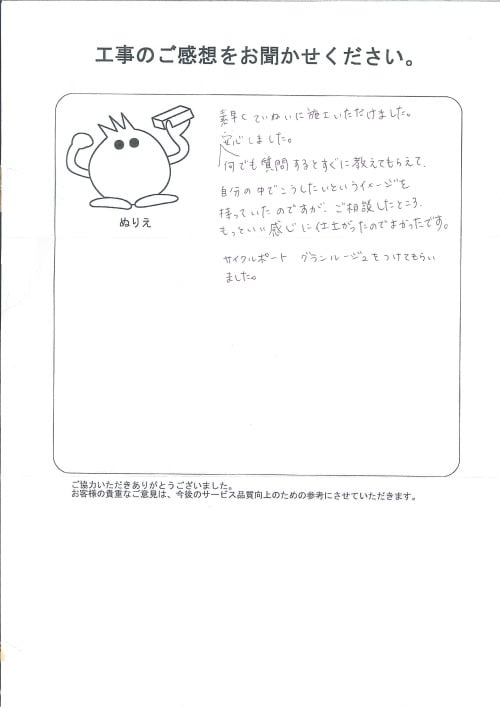 工事のご感想をお聞かせください。
素早くていねいに施工いただけました。
安心しました。
何でも質問するとすぐに教えてもらえて、
自分の中でこうしたいというイメージを
持っていたのですが、ご相談したところ、
もっといい感じに仕上がったのでよかったです。
サイクルポート グランルージュをつけてもらい
ました。
ぬりえ
ご協力いただきありがとうございました。
お客様の貴重なご意見は、今後のサービス品質向上のための参考にさせていただきます。